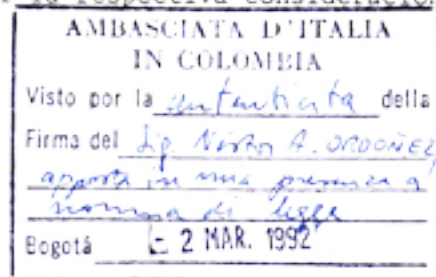 la respectiva consideración
AMBASCIATA D'ITALIA
IN COLOMBIA
Visto por la autenticita della
Firma del Sig. Néstor A. ORDOÑEZ
apposta in mia presenza a
norma di legge
Bogotá - 2 MAR. 1992